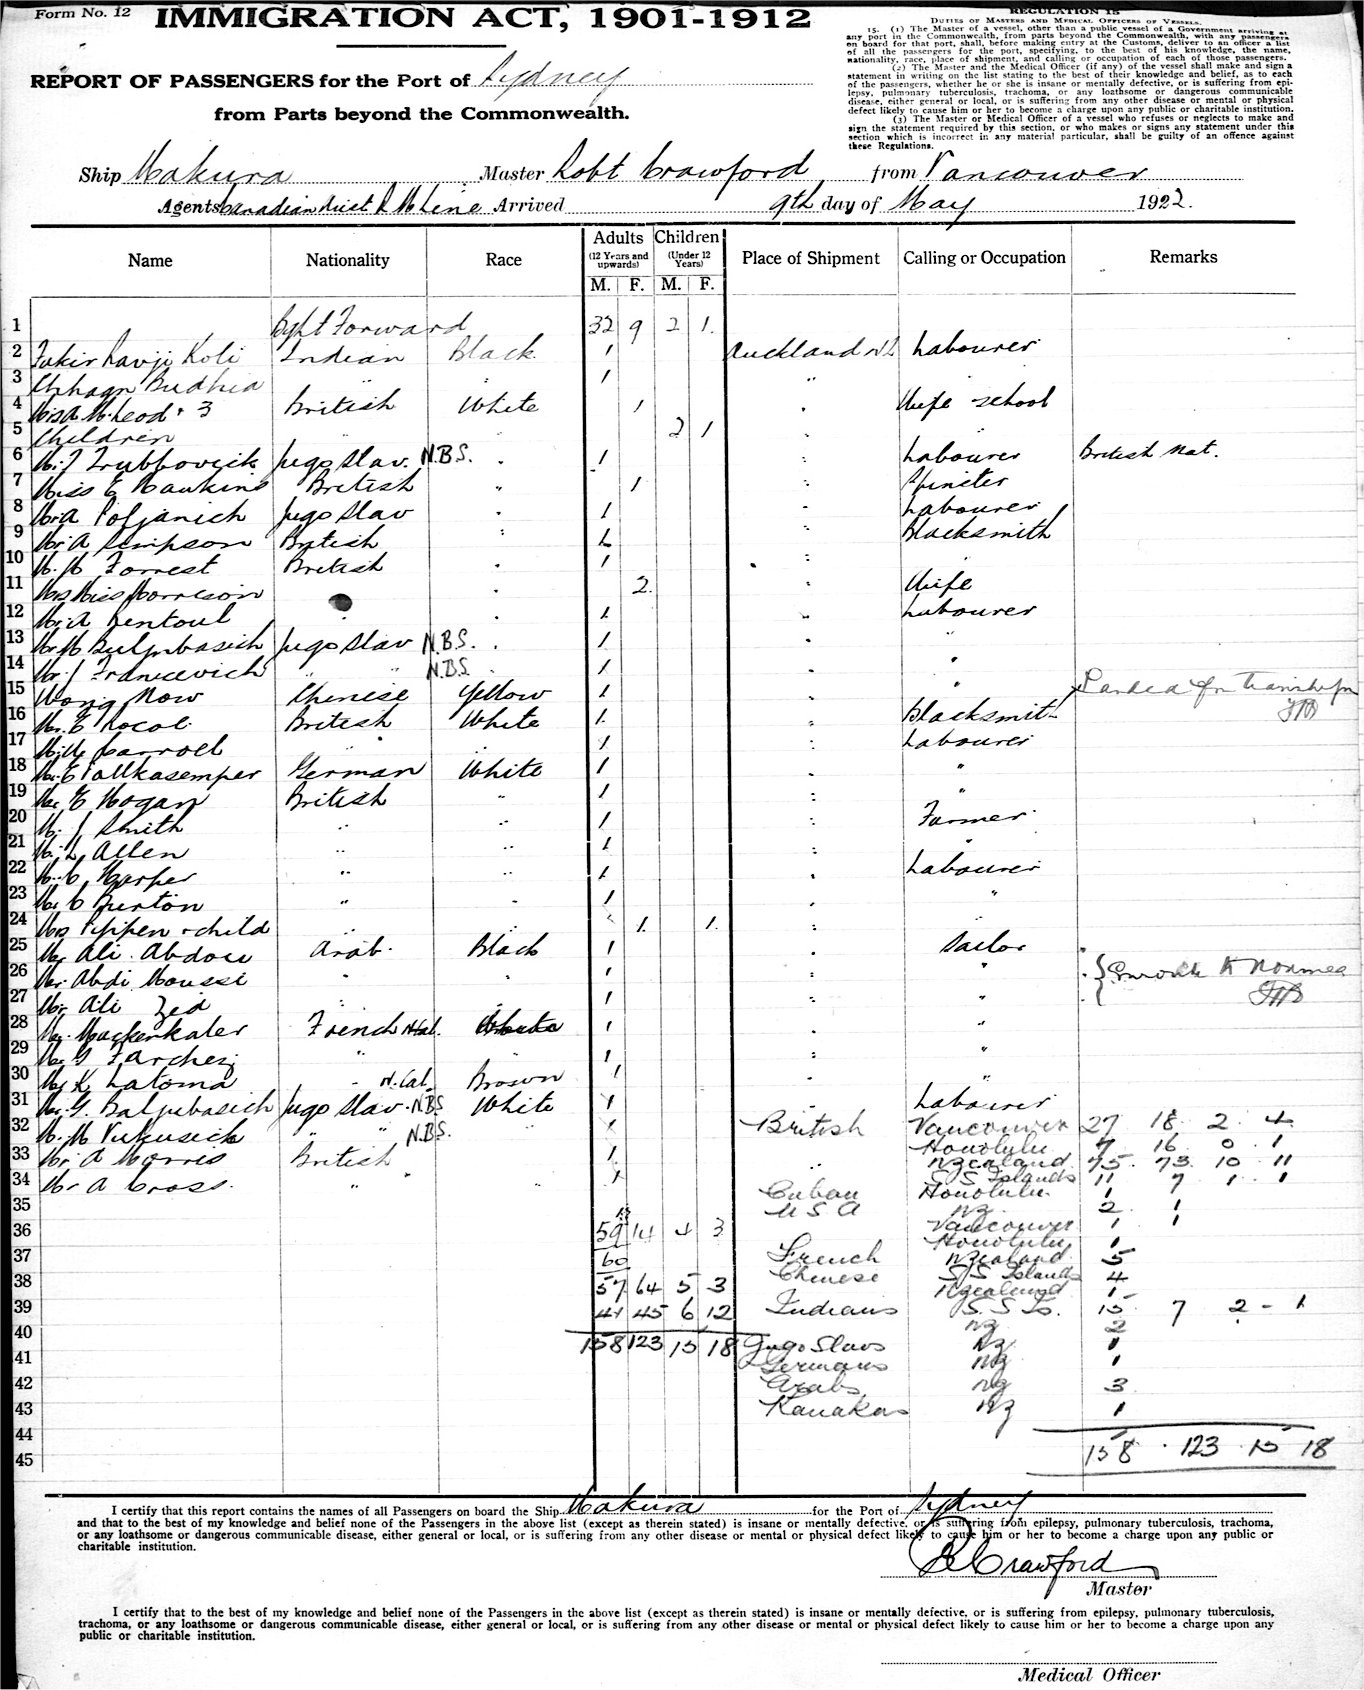 Form No. 12
IMMIGRATION ACT, 1901-1912
REGULATION 15
DUTIES OF MASTERS AND MEDICAL OFFICERS OF VESSELS.
15. (1) The Master of a vessel, other than a public vessel of a Government arriving at
any port in the Commonwealth, from parts beyond the Commonwealth, with any passengers
on board for that port, shall, before making entry at the Customs, deliver to an officer a list
of all the passengers for the port, specifying, to the best of his knowledge, the name,
nationality, race, place of shipment, and calling or occupation of each of those passengers.
(2) The Master and the Medical Officer (if any) of the vessel shall make and sign a
statement in writing on the list stating to the best of their knowledge and belief, as to each
of the passengers, whether he or she is insane or mentally defective, or is suffering from epi-
lepsy, pulmonary tuberculosis, trachoma, or any loathsome or dangerous communicable
disease, either general or local, or is suffering from any other disease or mental or physical
defect likely to cause him or her to become a charge upon any public or charitable institution.
(3) The Master or Medical Officer of a vessel who refuses or neglects to make and
sign the statement required by this section, or who makes or signs any statement under this
section which is incorrect in any material particular, shall be guilty of an offence against
these Regulations.
REPORT OF PASSENGERS for the Port of Sydney
from Parts beyond the Commonwealth.
Ship Makura Master Robt Crawford from Vancouver
Agents Canadian Aust R M Line Arrived 9th day of May 1922.
Name Nationality Race Adults (12 Years and upwards) M. F. Children (Under 12 Years) M. F. Place of Shipment Calling or Occupation Remarks
1 Bght Forward 32 9 2 1
2 Fakir Ravji Koli Indian Black 1 Auckland NZ Labourer
3 Chhagn Budhia " " 1 "
4 Mrs A McLeod + 3 British White 1 " Wife school
5 Children " 2 1 "
6 Mr J Jugo Slav. N.B.S. " 1 " Labourer British Nat.
7 Miss E Hawkins British " 1 " Spinster
8 Mr A Poljanich Jugo Slav " 1 " Labourer
9 Mr A Simpson British " 1 " Blacksmith
10 Mr H Forrest British " 1 " "
11 Mrs Miss Morrison " 2 " Wife
12 Mr A Rentoul " " 1 " Labourer
13 Mr M Jugo Slav N.B.S. " 1 " "
14 Mr J Franicevich " N.B.S. 1 " "
15 Wong Mow Chinese Yellow 1 " " Landed for transhipm
16 Mr E British White 1 " Blacksmith
17 Mr W Carroll " " 1 " Labourer
18 Mr E German White 1 " "
19 Mr E Hogan British " 1 " "
20 Mr J Smith " " 1 " Farmer
21 Mr L Allen " " 1 " "
22 Mr C Harper " " 1 " Labourer
23 Mr C Burton " " 1 " "
24 Mrs Pippen + child " " 1 1
25 Mr Ali Abdou Arab Black 1 Sailor
26 Mr Abdi Moussi " " 1 " Enroute to Noumea
27 Mr Ali Zed " 1 "
28 Mr Mackenkaler French N.Cal. White 1 "
29 Mr G Farchez " " 1 "
30 Mr K Latoma " N. Cal. Brown 1 "
31 Mr G. Baljubasich Jugo Slav. N.B.S White 1 " Labourer
32 Mr M Vukusich " " N.B.S. British Vancouver 27 18 2 4
33 Mr A Morris British " 1 Honolulu 7 16 0 1
NZealand 75 73 10 11
34 Mr A Cross " " 1 S S Islands 11 7 1 1
Cuban Honolulu 1
35 U S A NZ 2 1
36 59 14 4 3 Vancouver 1 1
Honolulu 1
37 60 French NZealand 5
Chinese S/S Islands 4
38 57 64 5 3 NZealand 1
39 41 45 6 12 Indians S. S Is. 15 7 2 - 1
NZ 2
40 158 123 15 18 Jugo Slavs NZ 1
41 Germans NZ 1
42 Arabs NZ 3
43 Kanakas NZ 1
44
45 158 123 15 18
I certify that this report contains the names of all Passengers on board the Ship Makura for the Port of Sydney
and that to the best of my knowledge and belief none of the Passengers in the above list (except as therein stated) is insane or mentally defective, or is suffering from epilepsy, pulmonary tuberculosis, trachoma,
or any loathsome or dangerous communicable disease, either general or local, or is suffering from any other disease or mental or physical defect likely to cause him or her to become a charge upon any public or
charitable institution.
R Crawford
Master
I certify that to the best of my knowledge and belief none of the Passengers in the above list (except as therein stated) is insane or mentally defective, or is suffering from epilepsy, pulmonary tuberculosis,
trachoma, or any loathsome or dangerous communicable disease, either general or local, or is suffering from any other disease or mental or physical defect likely to cause him or her to become a charge upon any
public or charitable institution.
Medical Officer